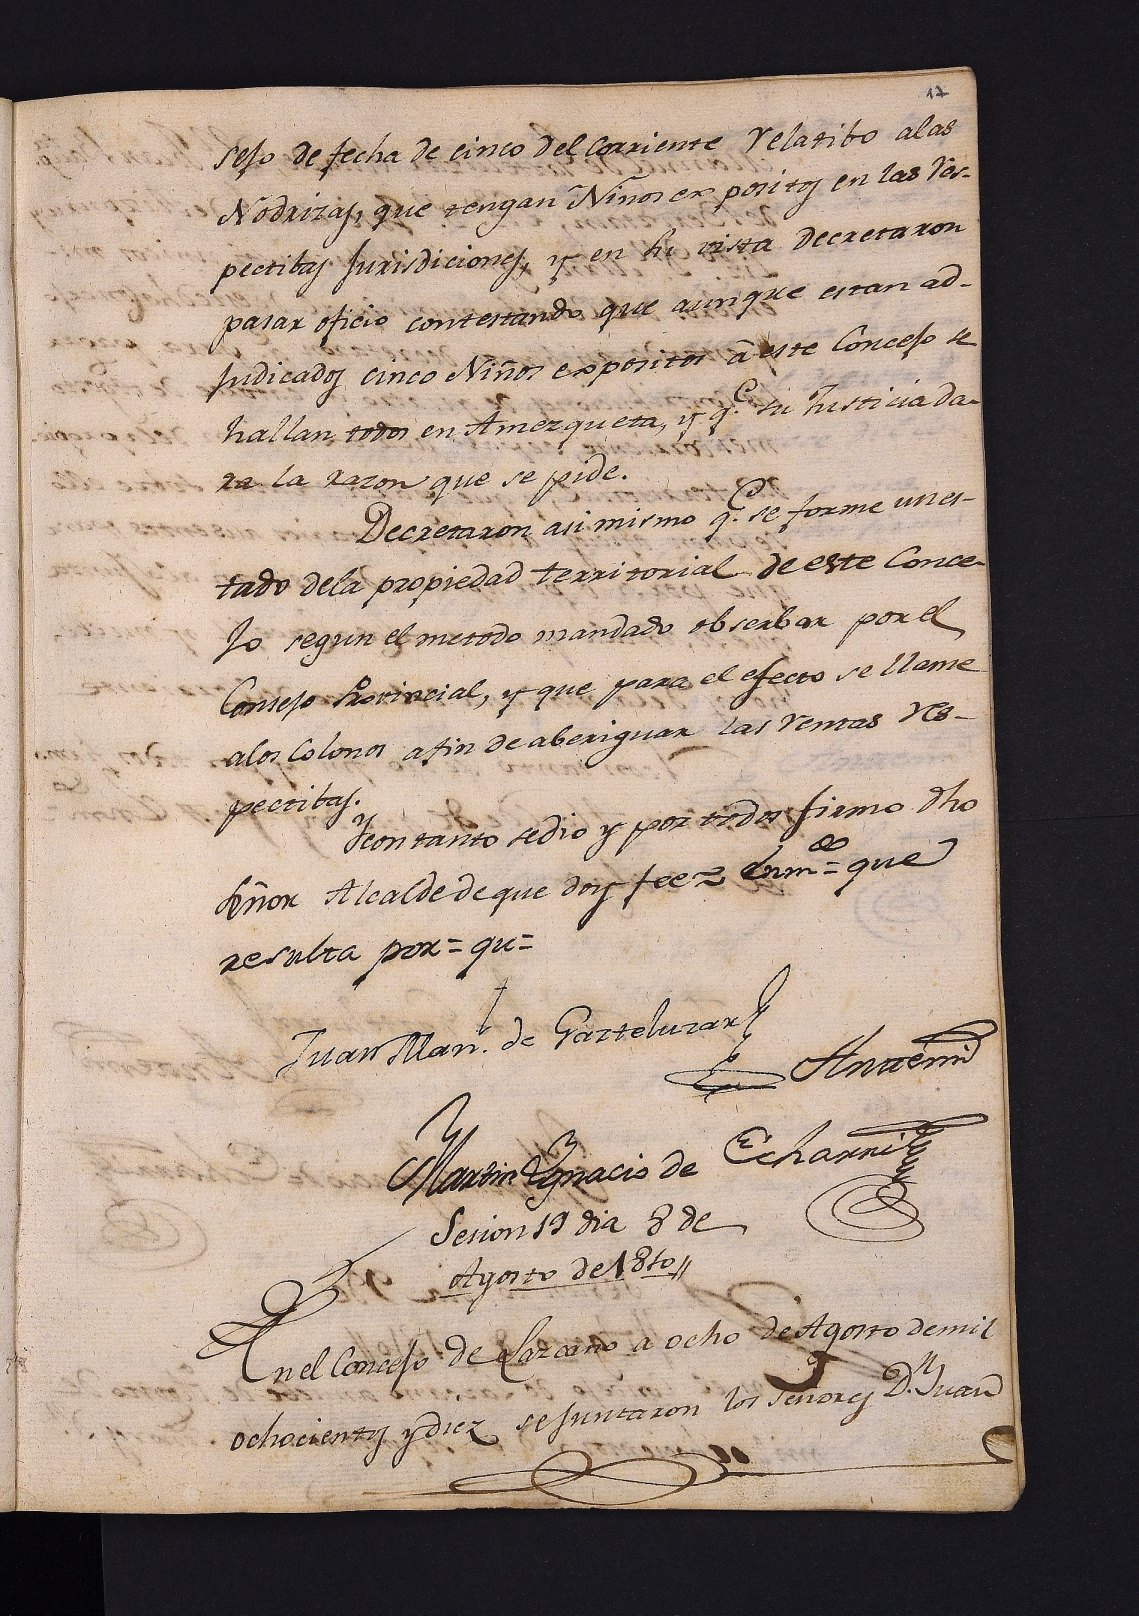 17
sejo de fecha de cinco del corriente relatibo alas
Nodrizas, que tengan Niños expositos en las res-
pectibas Jurisdiciones, y en su vista decretaron
pasar oficio contestando que aunque estan ad-
judicados cinco Niños expositos á este Concejo se
hallan todos en Amezqueta, y q.e su Justicia da-
ra la razon que se pide.
Decretaron asi mismo q.e se forme un es-
tado dela propiedad territorial de este Conce-
jo segun el metodo mandado obserbar por el
Consejo Provincial, y que para el efecto se llame
alos Colonos afin de aberiguar las rentas res-
pectibas.
Y con tanto sedio y por todos firmo dho
Señor Alcalde de que doy fee = Enm.do = que
resulta por = qu =
Juan Man. de Gazteluzar
Ante mi
Martin Ygnacio de Echarri
Sesion 19 dia 8 de
Agosto de 1810
En el Concejo de Lazcano a ocho de Agosto de mil
ochocientos y diez se juntaron los señores D.n Juan